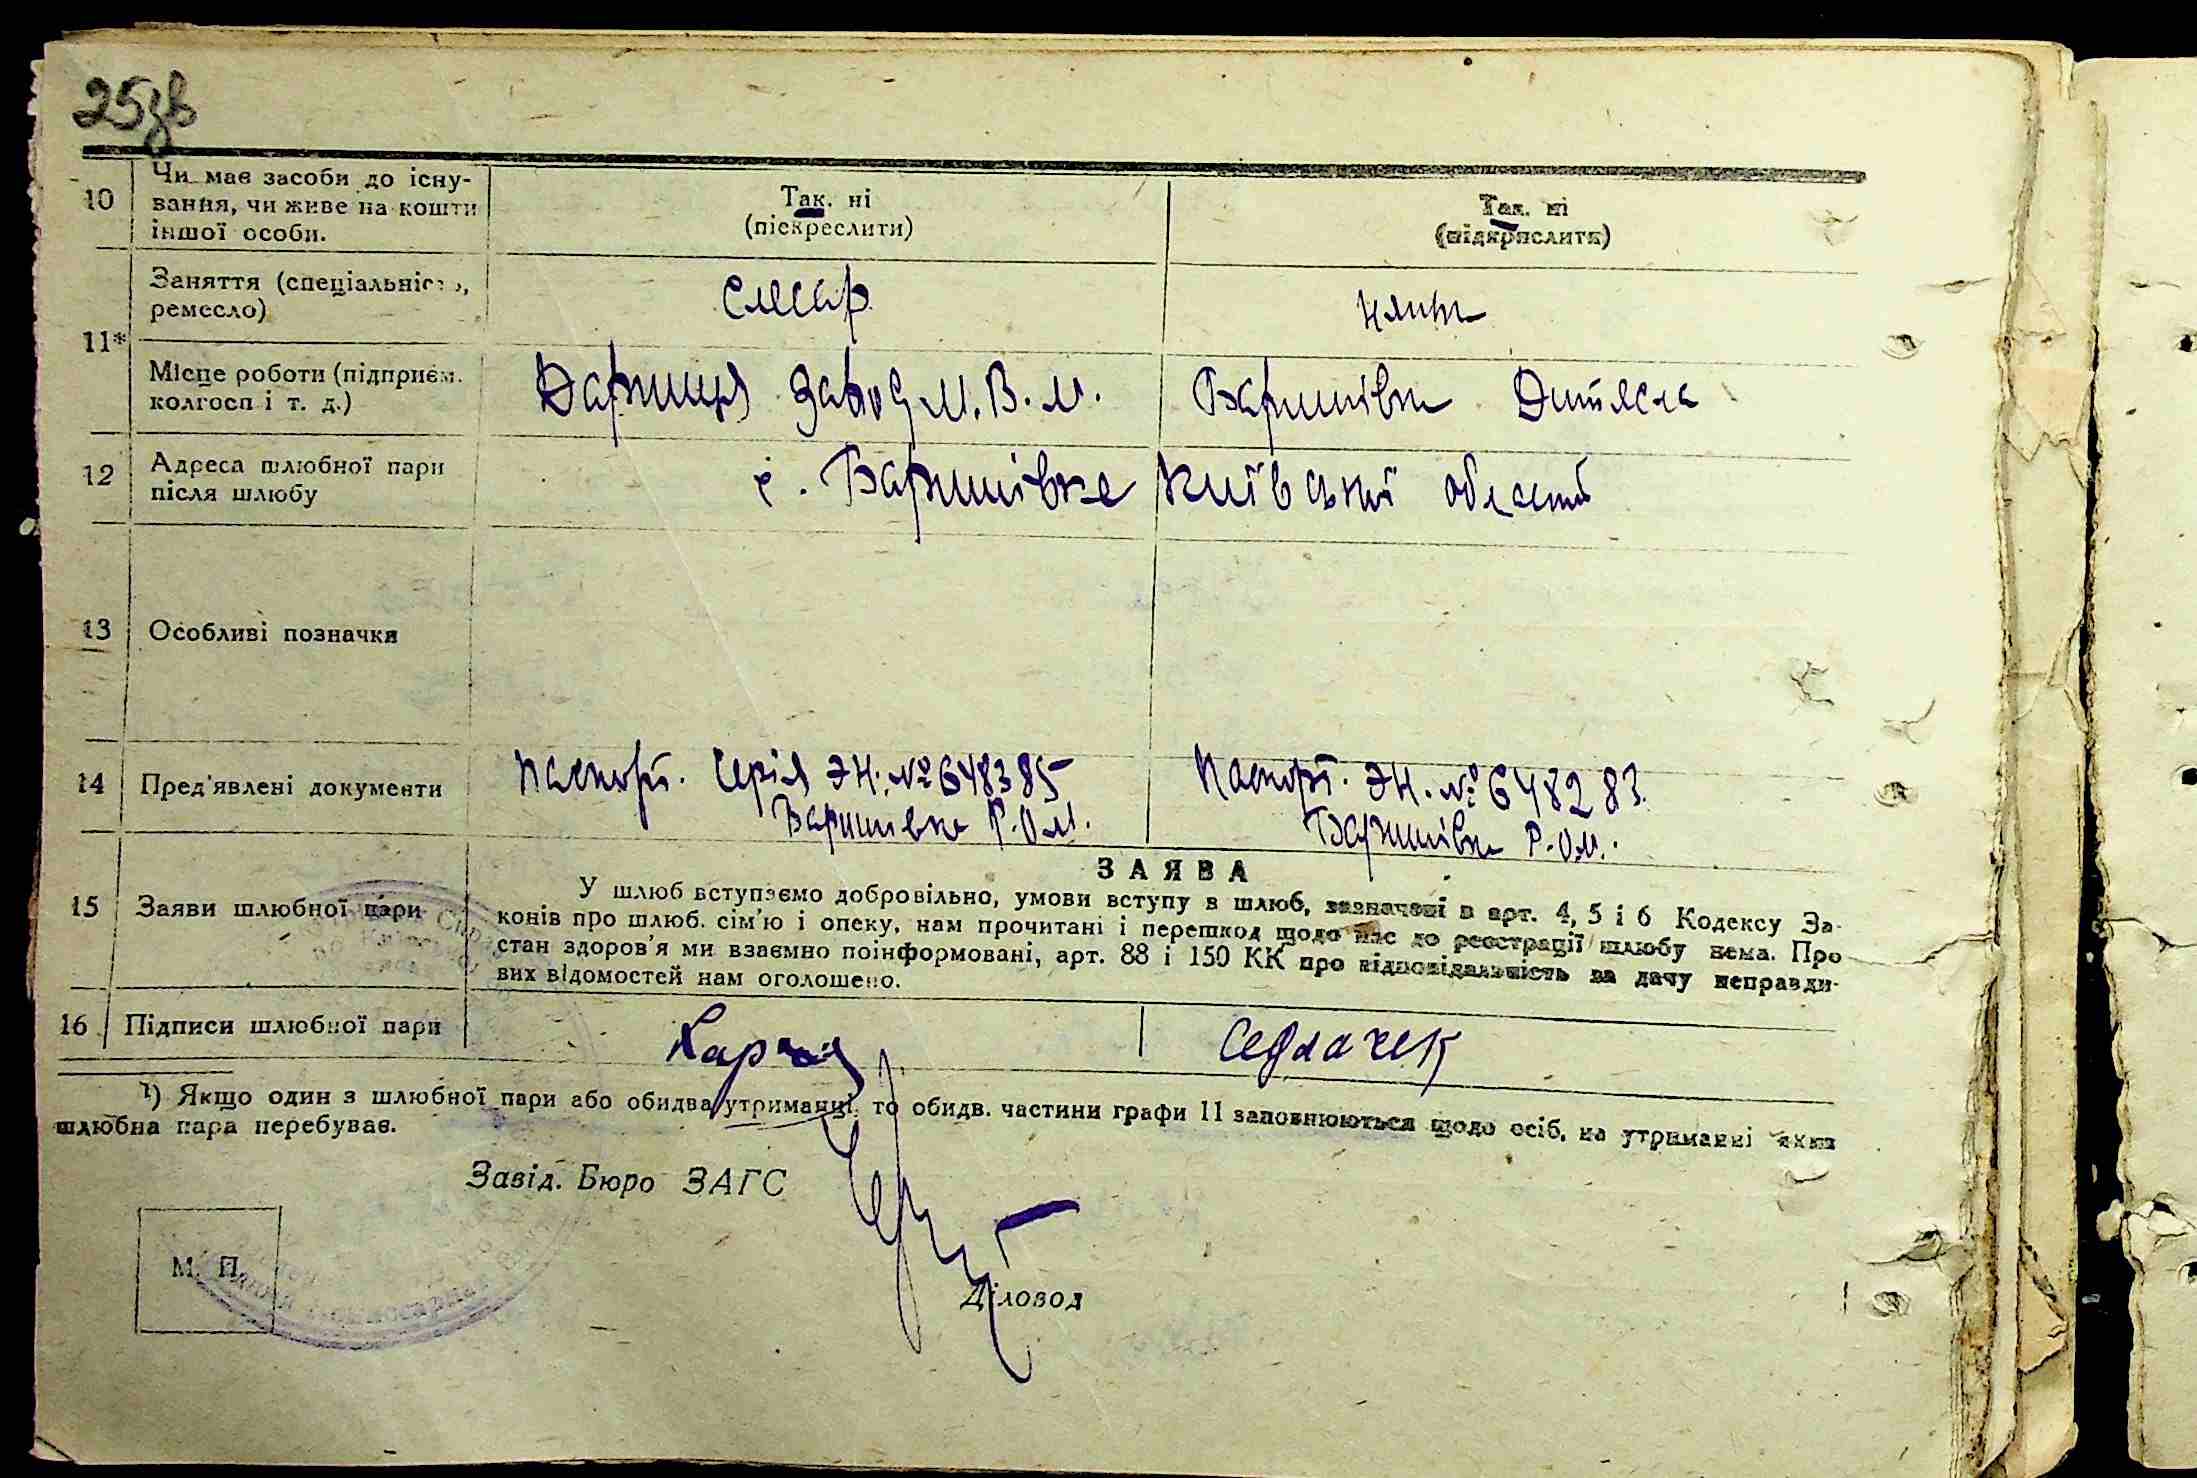 25зв
10
Чи має засоби до існу-
вання, чи живе на кошти
іншої особи.
Так. ні
(піскреслити)
Так. ні
(підкрислити)
11*
Заняття (спеціальність,
ремесло)
слесар
няня
Місце роботи (підприєм.
колгосп і т. д.)
Дарниця завод М.В.М.
Баришівка Дитясла
12
Адреса шлюбної пари
після шлюбу
с. Баришівка Київської області
13
Особливі позначки
14
Пред'явлені документи
Паспорт. Серія ЭН. № 648385
Баришівка Р.О.М.
Паспорт. ЭН. № 648283.
Баришівка Р.О.М.
15
Заяви шлюбної пари
ЗАЯВА
У шлюб вступаємо добровільно, умови вступу в шлюб, зазначені в арт. 4, 5 і 6 Кодексу За-
конів про шлюб. сім'ю і опеку, нам прочитані і перешкод щодо нас до реєстрації шлюбу нема. Про
стан здоров'я ми взаємно поінформовані, арт. 88 і 150 КК про відповідальність за дачу неправди-
вих відомостей нам оголошено.
16
Підписи шлюбної пари
Седлачек
¹) Якщо один з шлюбної пари або обидва утриманці, то обидв. частини графи 11 заповнюються щодо осіб, на утриманні яких
шлюбна пара перебуває.
Завід. Бюро ЗАГС
М. П.
Діловод